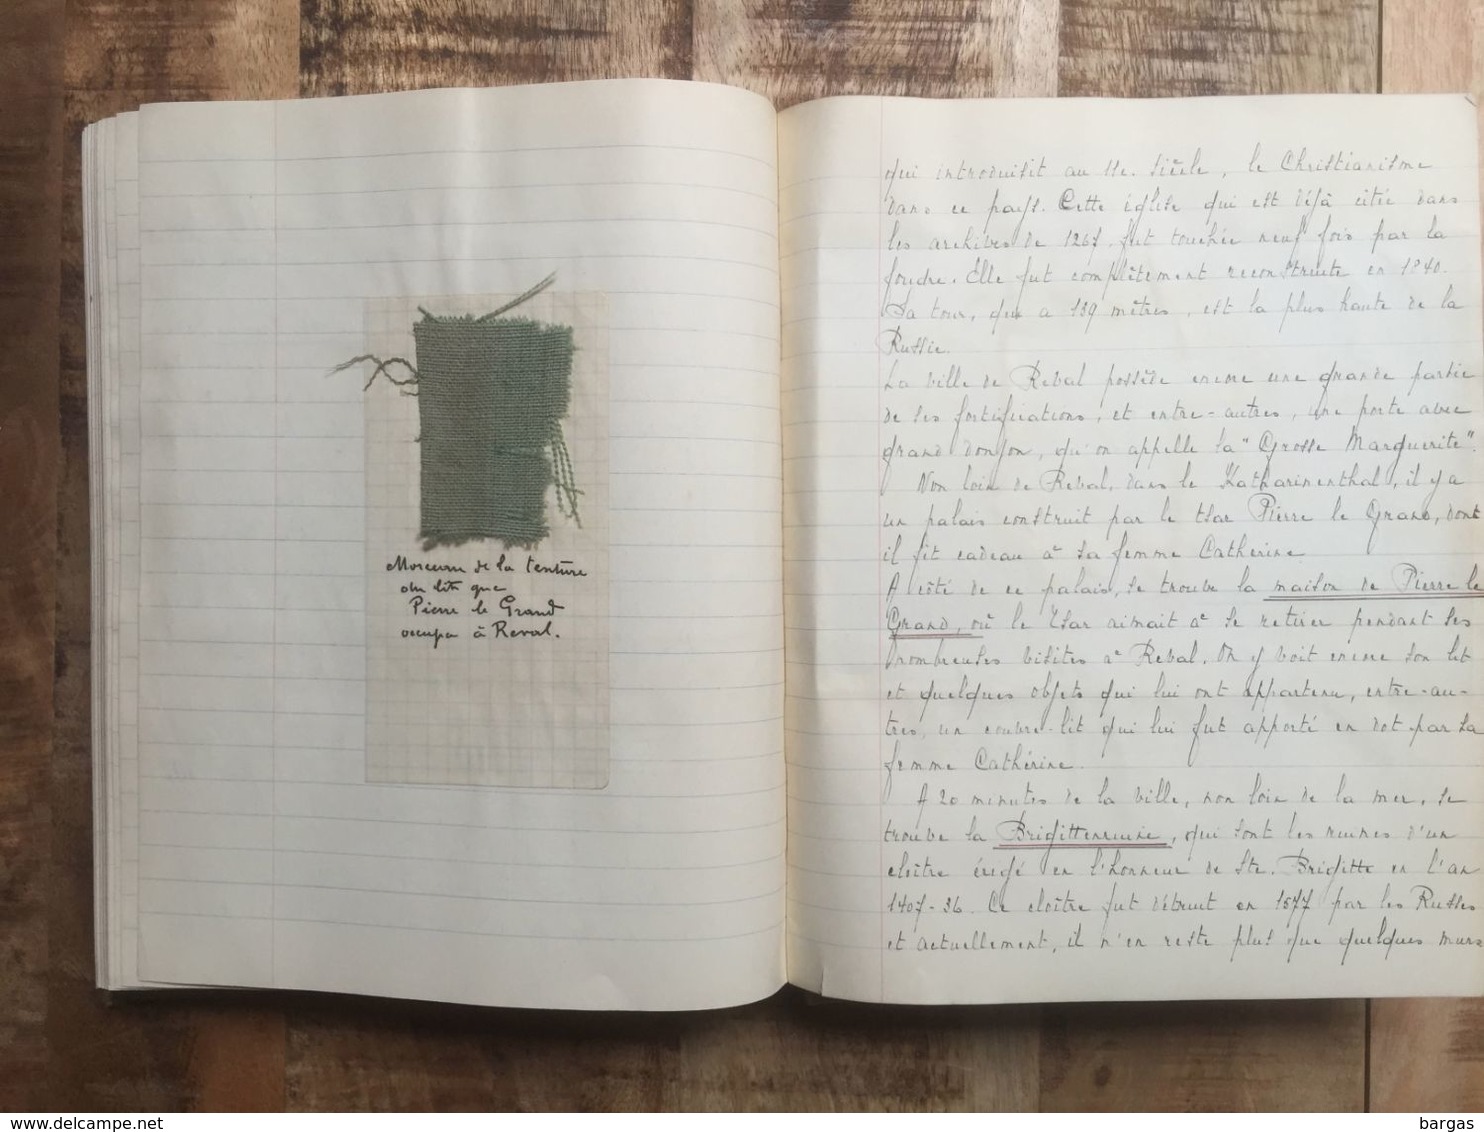 Morceau de la tenture
du lit que
Pierre le Grand
occupa à Reval.
qui introduisit au 11e. siècle, le Christianisme
dans ce pays. Cette église qui est déjà citée dans
les archives de 1267, fut touchée neuf fois par la
foudre. Elle fut complètement reconstruite en 1840.
Sa tour, qui a 139 mètres, est la plus haute de la
Russie.
La ville de Reval possède encore une grande partie
de ses fortifications, et entre-autres, une porte avec
grand donjon, qu'on appelle la "Grosse Marguerite".
Non loin de Reval, dans le Katharinenthal, il y a
un palais construit par le tsar Pierre le Grand, dont
il fit cadeau à sa femme Catherine
A côté de ce palais, se trouve la maison de Pierre le
Grand, où le Tsar aimait à se retirer pendant ses
nombreuses visites à Reval. On y voit encore son lit
et quelques objets qui lui ont appartenu, entre-au-
tres, un couvre-lit qui lui fut apporté en dot par sa
femme Cathérine.
A 20 minutes de la ville, non loin de la mer, se
trouve la Brigittenruine, qui sont les ruines d'un
cloître érigé en l'honneur de Ste. Brigitte en l'an
1407-36. Ce cloître fut détruit en 1577 par les Russes
et actuellement, il n'en reste plus que quelques murs
www.delcampe.net
bargas